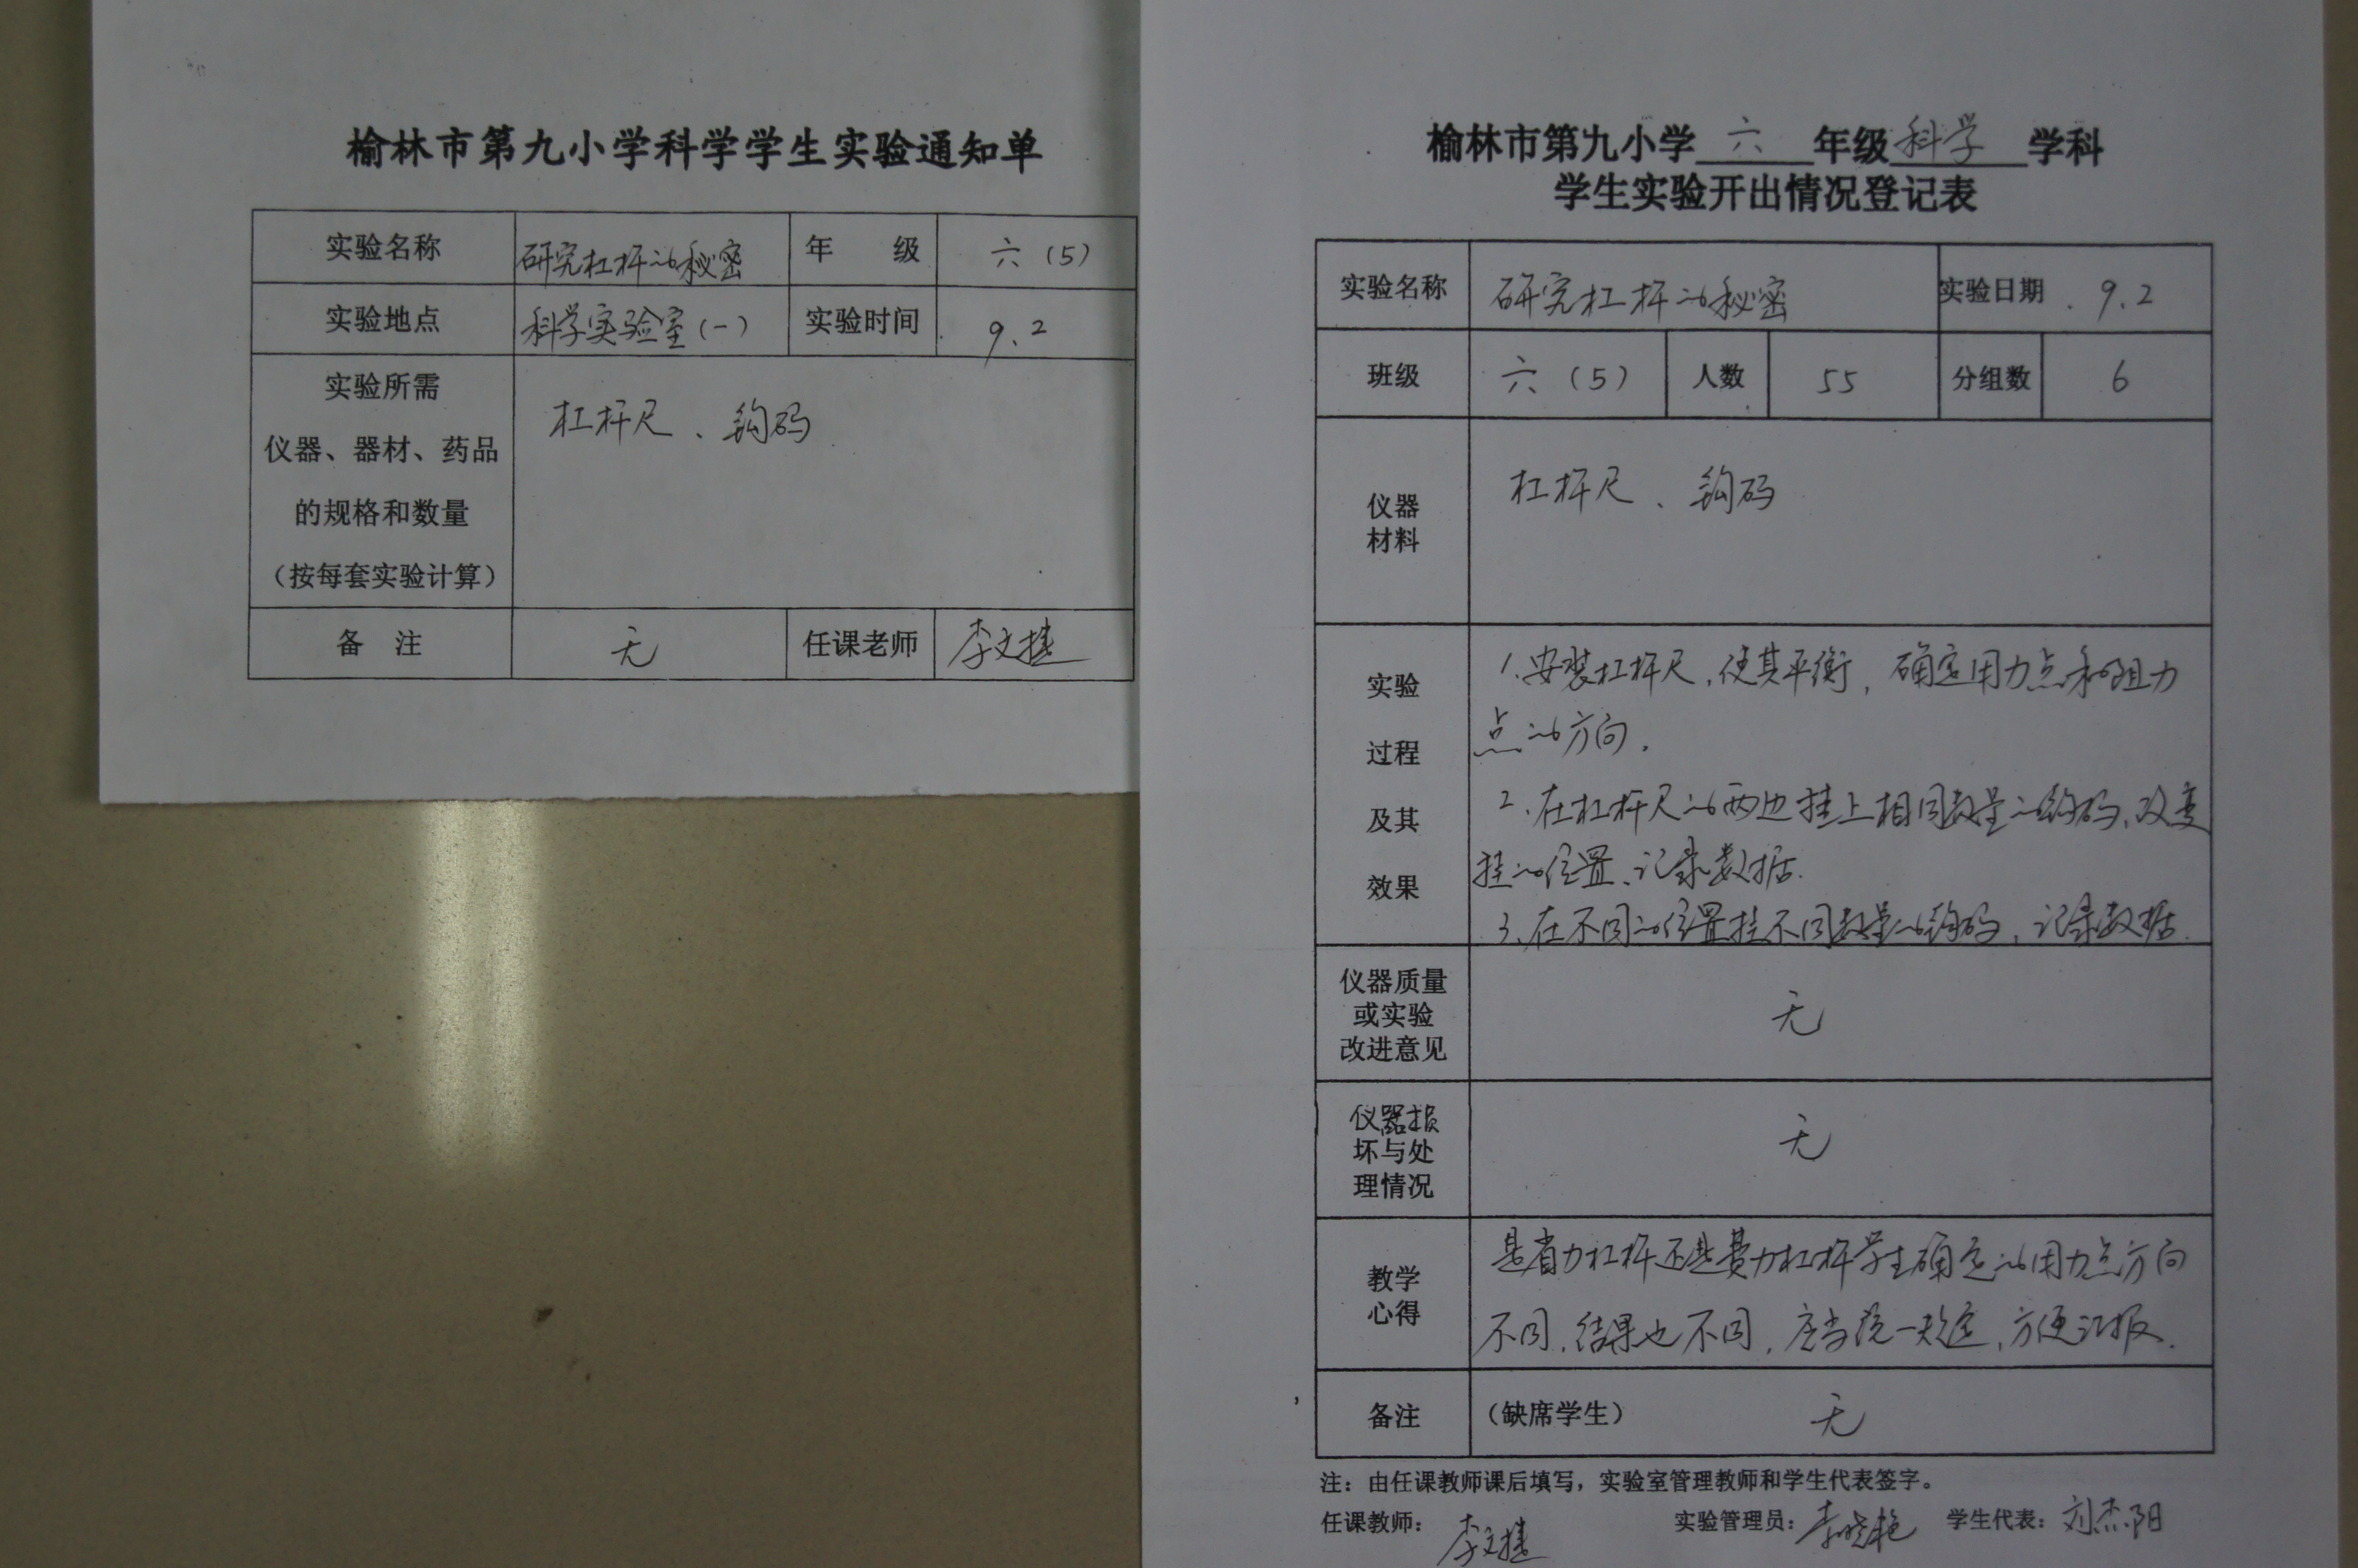 榆林市第九小学科学学生实验通知单
实验名称 研究杠杆的秘密 年 级 六(5)
实验地点 科学实验室(一) 实验时间 9.2
实验所需
仪器、器材、药品
的规格和数量
(按每套实验计算)
杠杆尺、钩码
备 注 无 任课老师 李文捷
榆林市第九小学 六 年级 科学 学科
学生实验开出情况登记表
实验名称 研究杠杆的秘密 实验日期 9.2
班级 六(5) 人数 55 分组数 6
仪器
材料
杠杆尺、钩码
实验
过程
及其
效果
1.安装杠杆尺,使其平衡,确定用力点和阻力
点的方向.
2.在杠杆尺的两边挂上相同数量的钩码,改变
挂的位置、记录数据.
3.在不同的位置挂不同数量的钩码,记录数据.
仪器质量
或实验
改进意见
无
仪器损
坏与处
理情况
无
教学
心得
是省力杠杆还是费力杠杆学生确定的用力点方向
不同,结果也不同,应当统一规定,方便汇报.
备注 (缺席学生) 无
注:由任课教师课后填写,实验室管理教师和学生代表签字。
任课教师: 李文捷 实验管理员: 李晓艳 学生代表: 刘杰阳